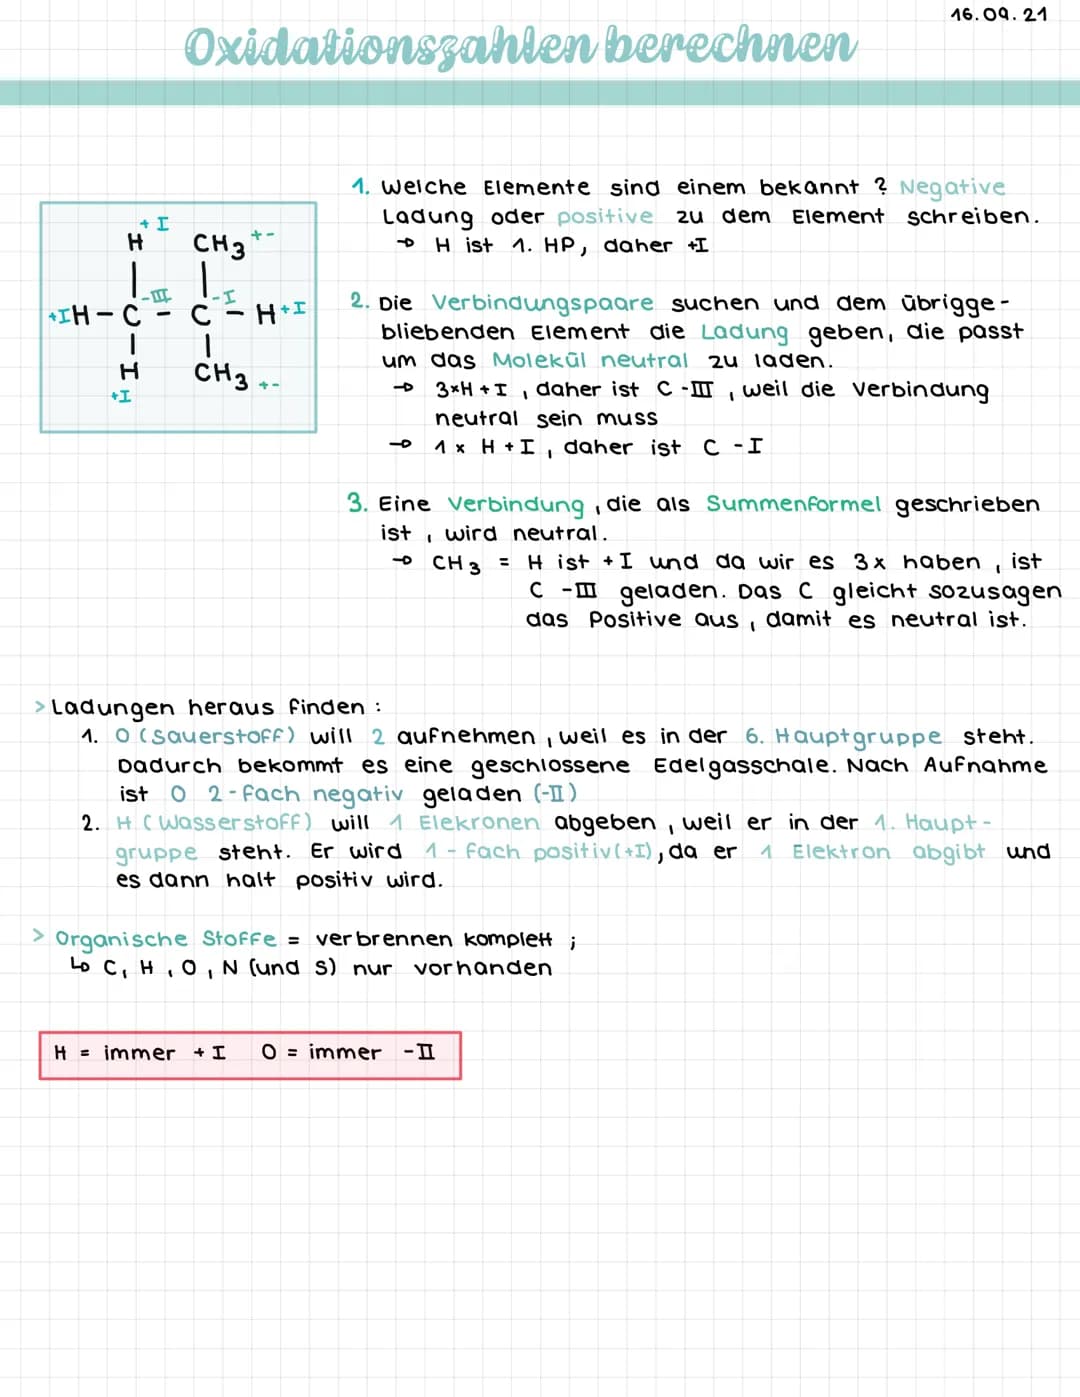 16.09.21
Oxidationszahlen berechnen
+I
H CH3 +-
-III -I
+I H - C - C - H +I
H CH3 +-
+I
1. Welche Elemente sind einem bekannt ? Negative
Ladung oder positive zu dem Element schreiben.
→ H ist 1. HP, daher +I
2. Die Verbindungspaare suchen und dem übrigge-
bliebenden Element die Ladung geben, die passt
um das Molekül neutral zu laden.
→ 3×H +I , daher ist C -III , weil die Verbindung
neutral sein muss
→ 1 x H +I , daher ist C -I
3. Eine Verbindung , die als Summenformel geschrieben
ist , wird neutral.
→ CH3 = H ist +I und da wir es 3x haben , ist
C -III geladen. Das C gleicht sozusagen
das Positive aus , damit es neutral ist.
> Ladungen heraus finden :
1. O (Sauerstoff) will 2 aufnehmen , weil es in der 6. Hauptgruppe steht.
Dadurch bekommt es eine geschlossene Edelgasschale. Nach Aufnahme
ist O 2-fach negativ geladen (-II)
2. H (Wasserstoff) will 1 Elekronen abgeben , weil er in der 1. Haupt-
gruppe steht. Er wird 1-fach positiv (+I), da er 1 Elektron abgibt und
es dann halt positiv wird.
> Organische Stoffe = verbrennen komplett ;
↳ C, H , O , N (und S) nur vorhanden
H = immer +I O = immer -II